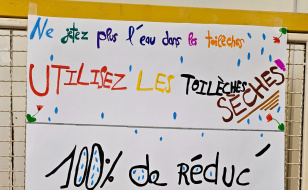 Ne jetez plus l'eau dans les toilèches
UTILISEZ LES TOILÈCHES
SÈCHES!
100% de RÉDUC'